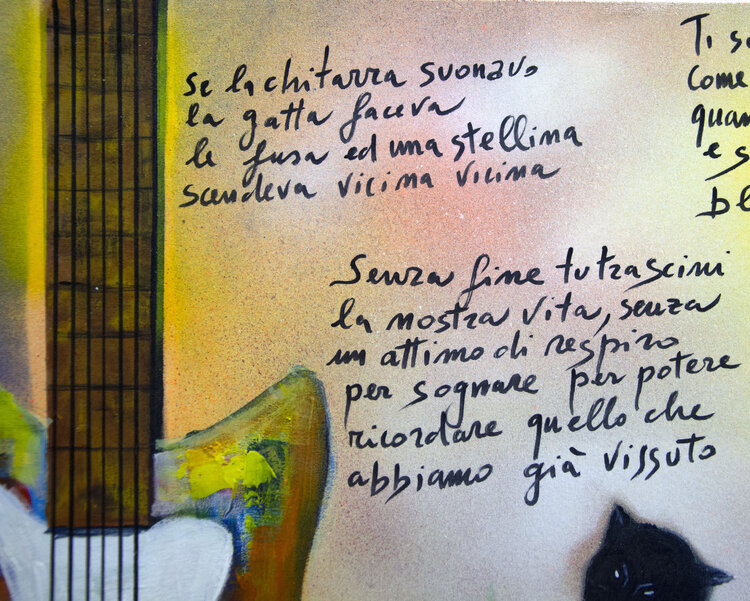 se la chitarra suonavo
la gatta faceva
le fusa ed una stellina
scendeva vicina vicina
Senza fine tu trascini
la nostra vita, senza
un attimo di respiro
per sognare per potere
ricordare quello che
abbiamo già vissuto
Ti
come
e